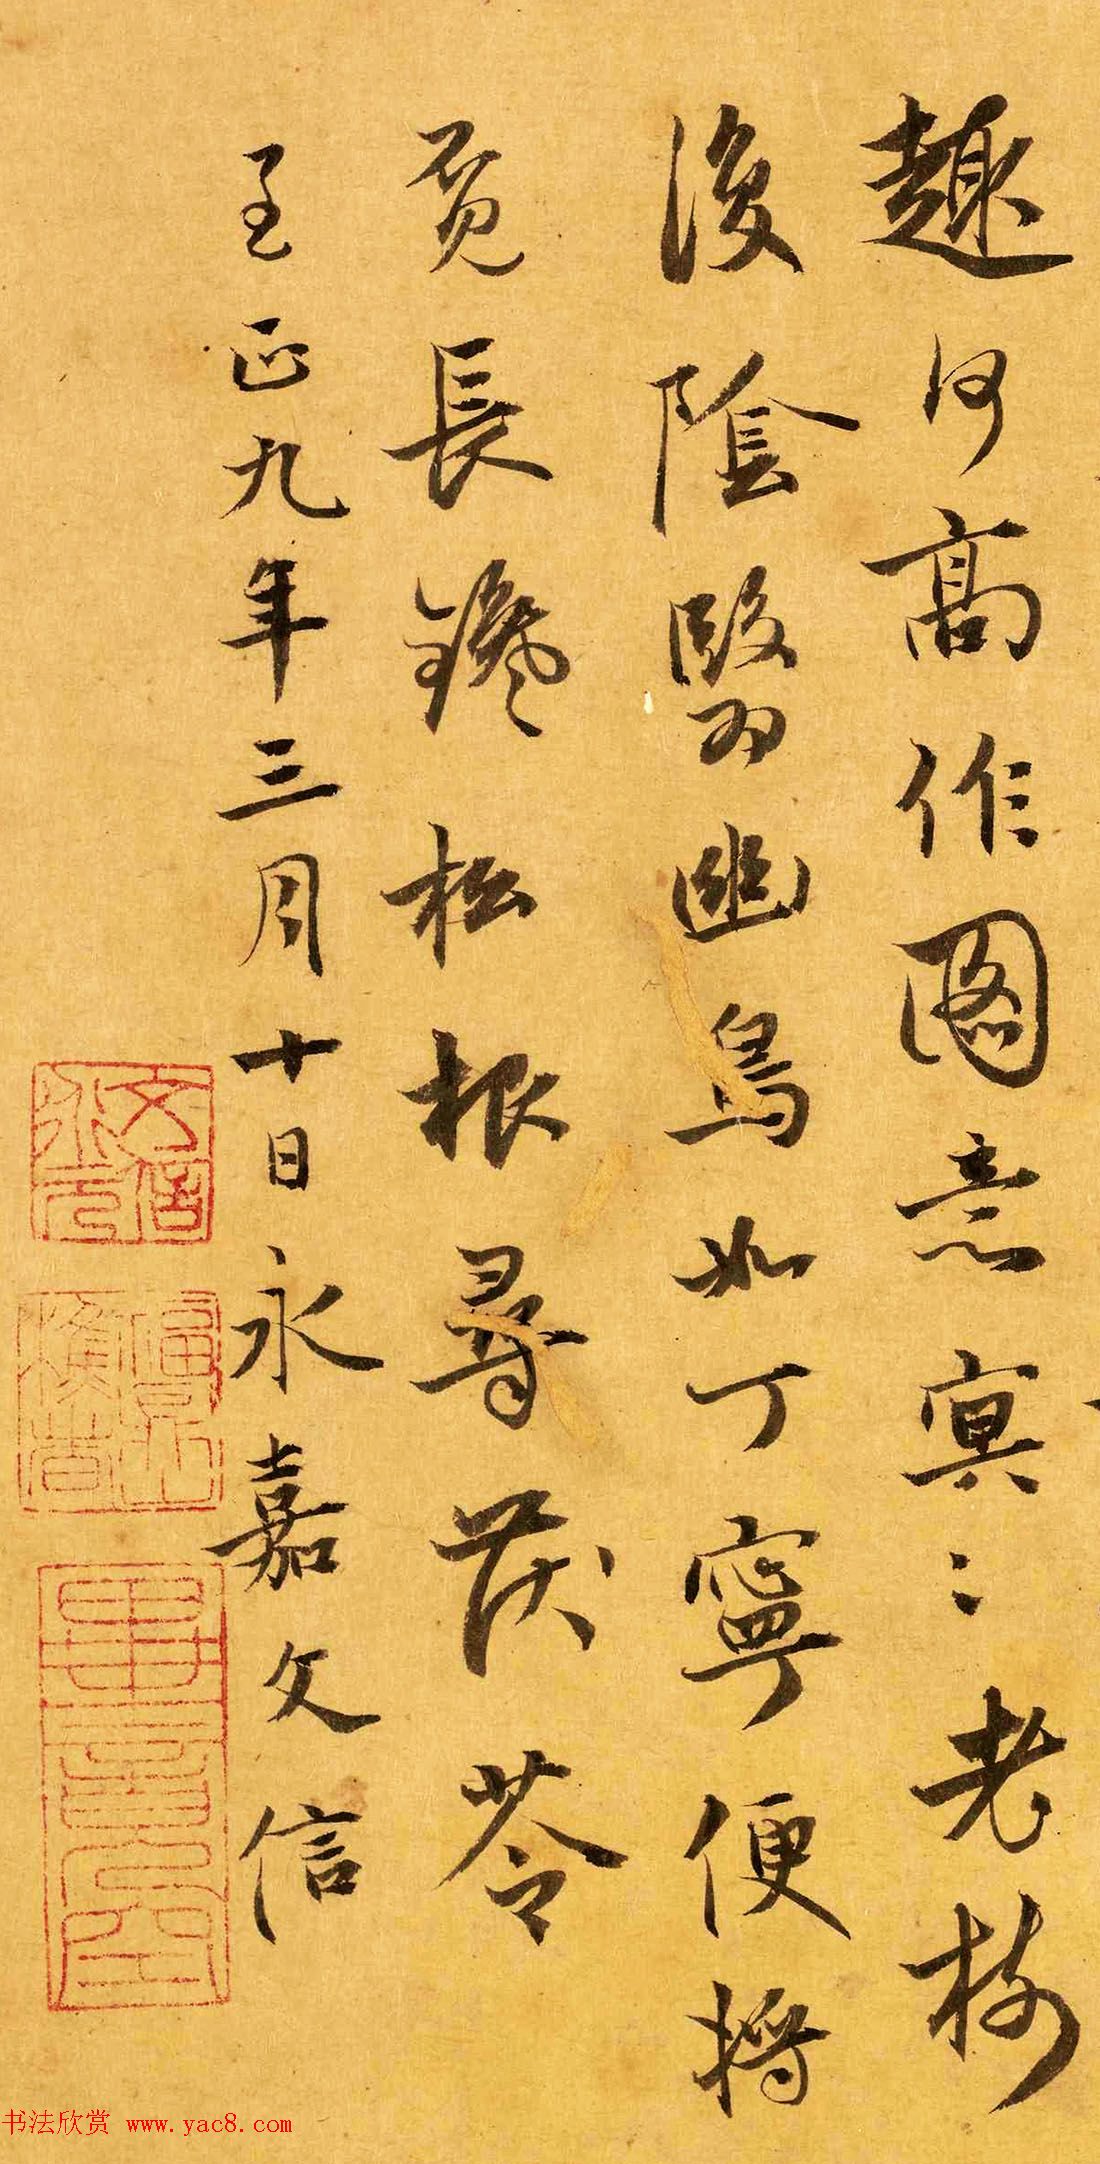 趣何高作圖意冥〻老樹
復陰翳幽鳥如丁寧便將
覔長鑱松根尋茯苓
至正九年三月十日永嘉文信
书法欣赏 www.yac8.com